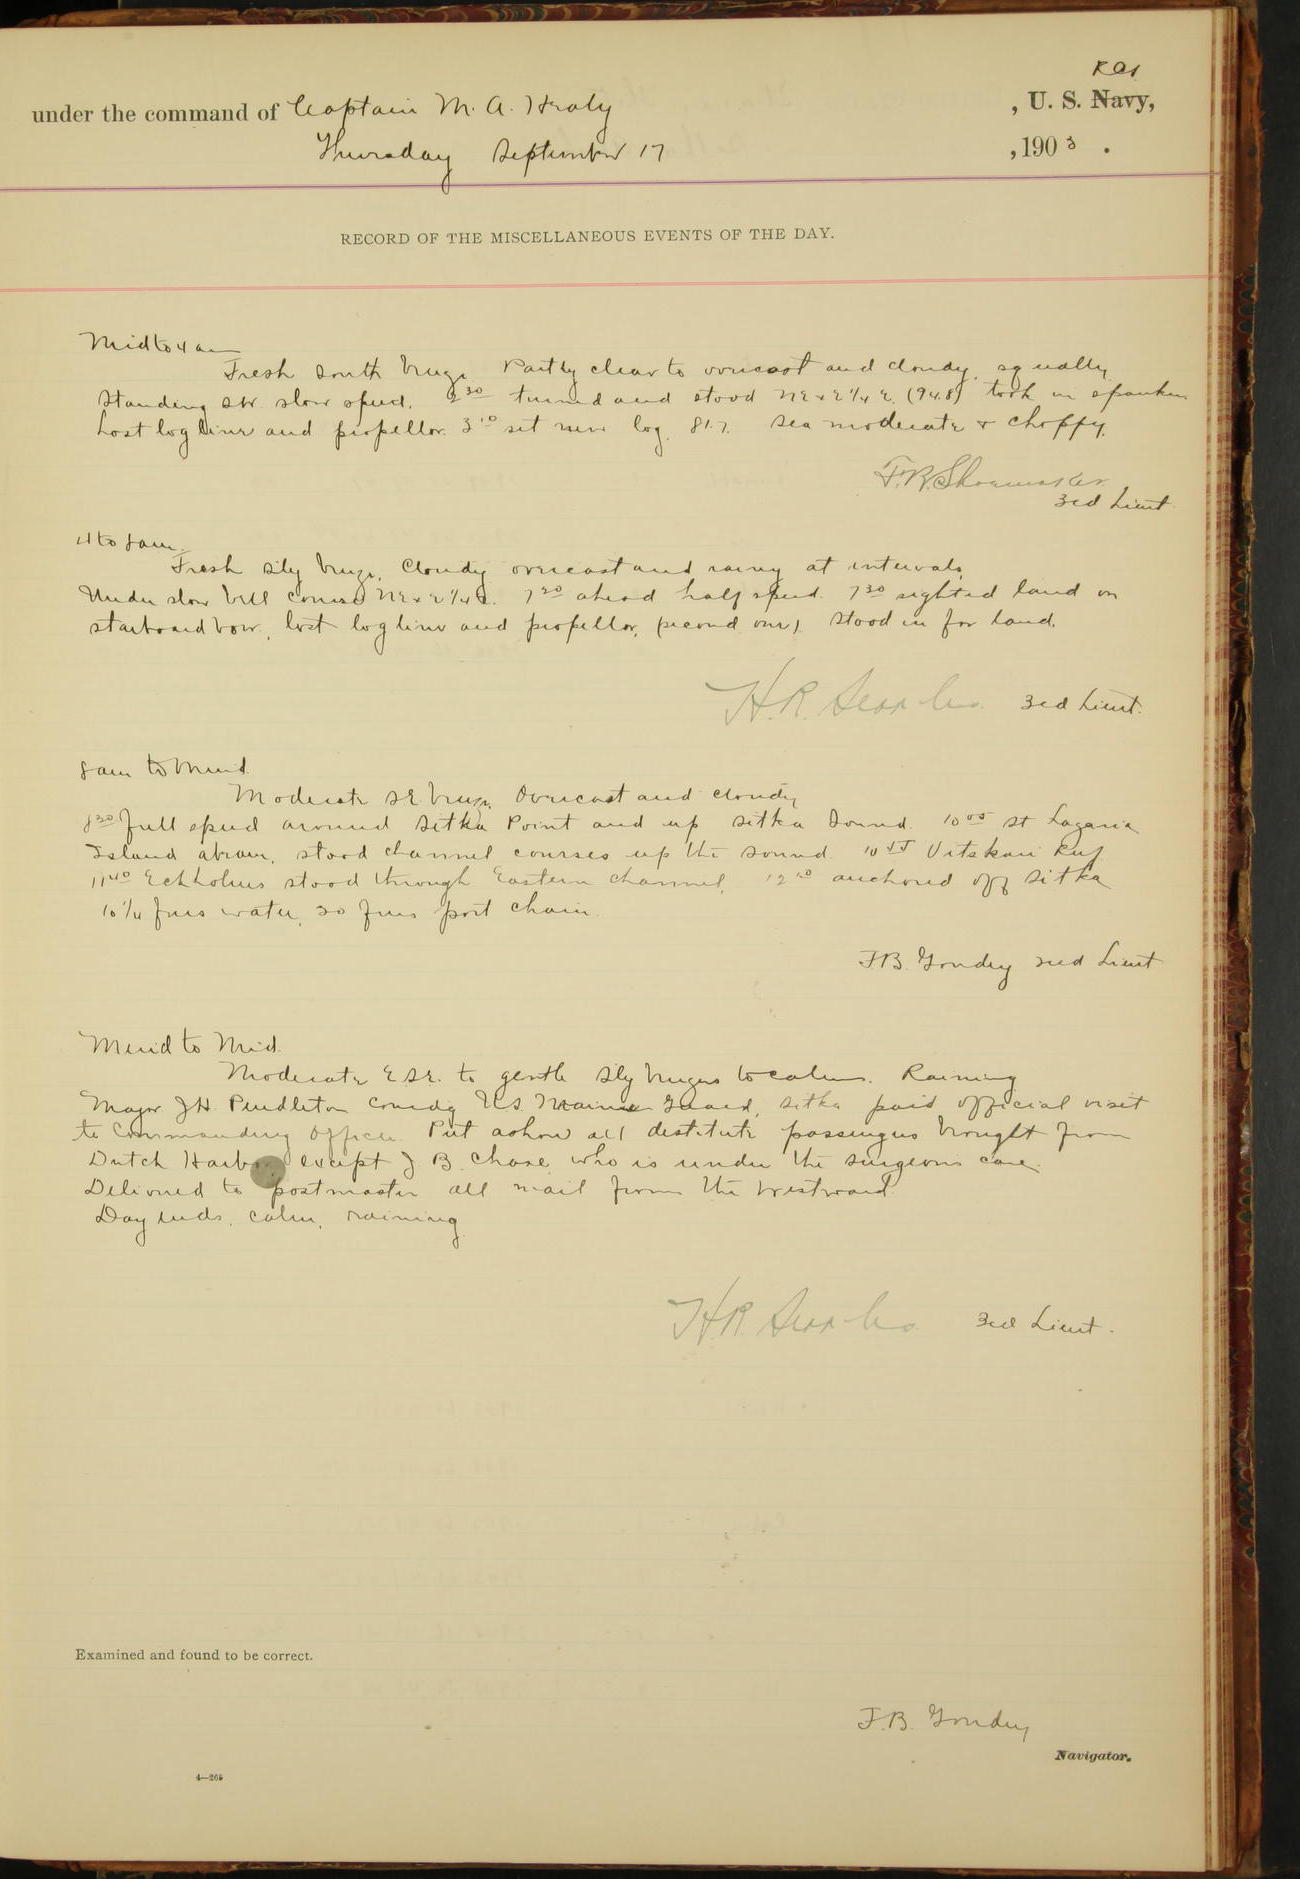 RCS
under the command of Captain M. A. Healy , U. S. Navy,
Thursday September 17 , 1903 .
RECORD OF THE MISCELLANEOUS EVENTS OF THE DAY.
Mid to 4 am
Fresh South breeze Partly clear to overcast and cloudy, squally
Standing SW. slow speed. 2 30 turned and stood NE x E 1/4 E. (94.8) took in spanker
Lost log line and propellor. 3 10 set new log. 81.7. Sea moderate & choppy.
F.R. Shoemaker
3rd Lieut
4 to 8 am
Fresh Sly breeze, Cloudy overcast and rainy at intervals,
Under slow bell course NE x E 1/4 E. 7 20 ahead half speed. 7 30 sighted land on
starboard bow, lost log line and propellor, (second one). Stood in for land.
H.R. Searles 3rd Lieut.
8 am to Merid
Moderate SE breeze, Overcast and cloudy,
8 30 full speed around Sitka Point and up Sitka Sound. 10 05 St Lazaria
Island abeam, stood channel courses up the sound. 10 45 Vitskari Reef
11 40 Eckholms stood through Eastern channel, 12 10 anchored off Sitka
10 1/4 fms water, 30 fms port chain.
F.B. Goudey 2nd Lieut
Merid to Mid.
Moderate ESE. to gentle Sly breezes to calm. Raining
Major J.H. Pendleton Comdg U.S. Marine Guard, Sitka paid official visit
to Commanding Officer. Put ashore all destitute passengers brought from
Dutch Harbor except J B. Chase who is under the surgeons care.
Delivered to postmaster all mail from the Westward.
Day ends, calm, raining
H.R. Searles 3rd Lieut.
Examined and found to be correct.
F.B. Goudey
Navigator.
4—265